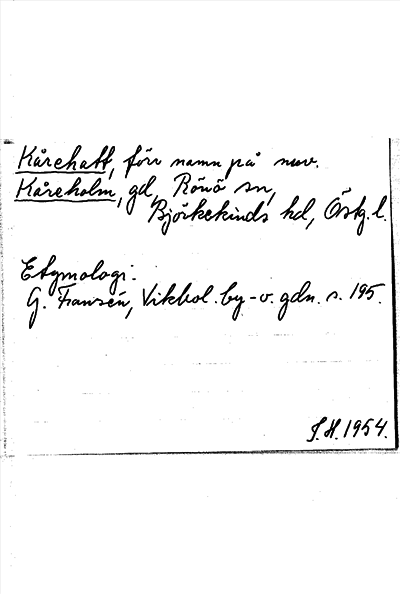 Kårehatt, förr namn på nuv.
Kåreholm, gd, Rönö sn,
Björkekinds hd, Östg.l.
Etymologi:
G. Franzén, Vikbol. by- o. gdn. s. 195.
S.H. 1954.